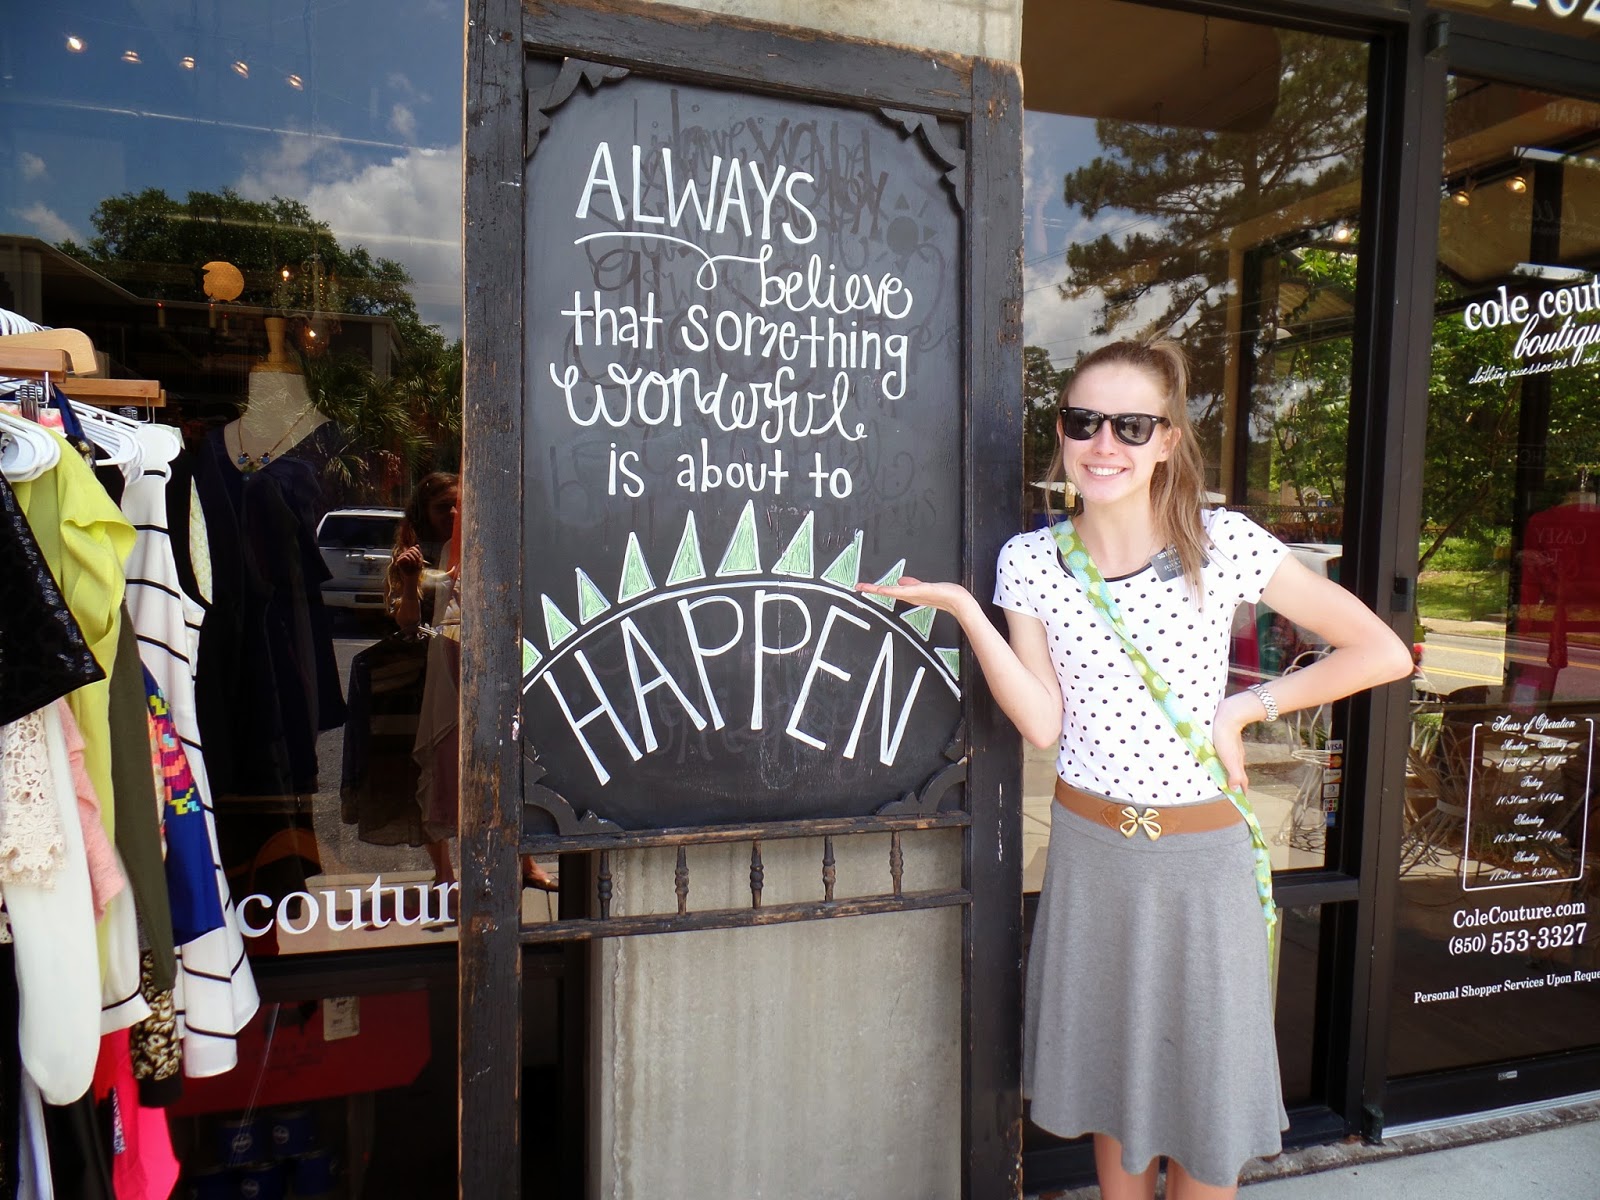 ALWAYS
believe
that something
wonderful
is about to
HAPPEN
couture
cole cout
boutiqu
clothing accessories and
VISA
Hours of Operation
Friday
10:30am - 8:00pm
Saturday
10:30am - 7:00pm
Sunday
11:30am - 4:30pm
ColeCouture.com
(850) 553-3327
Personal Shopper Services Upon Reque